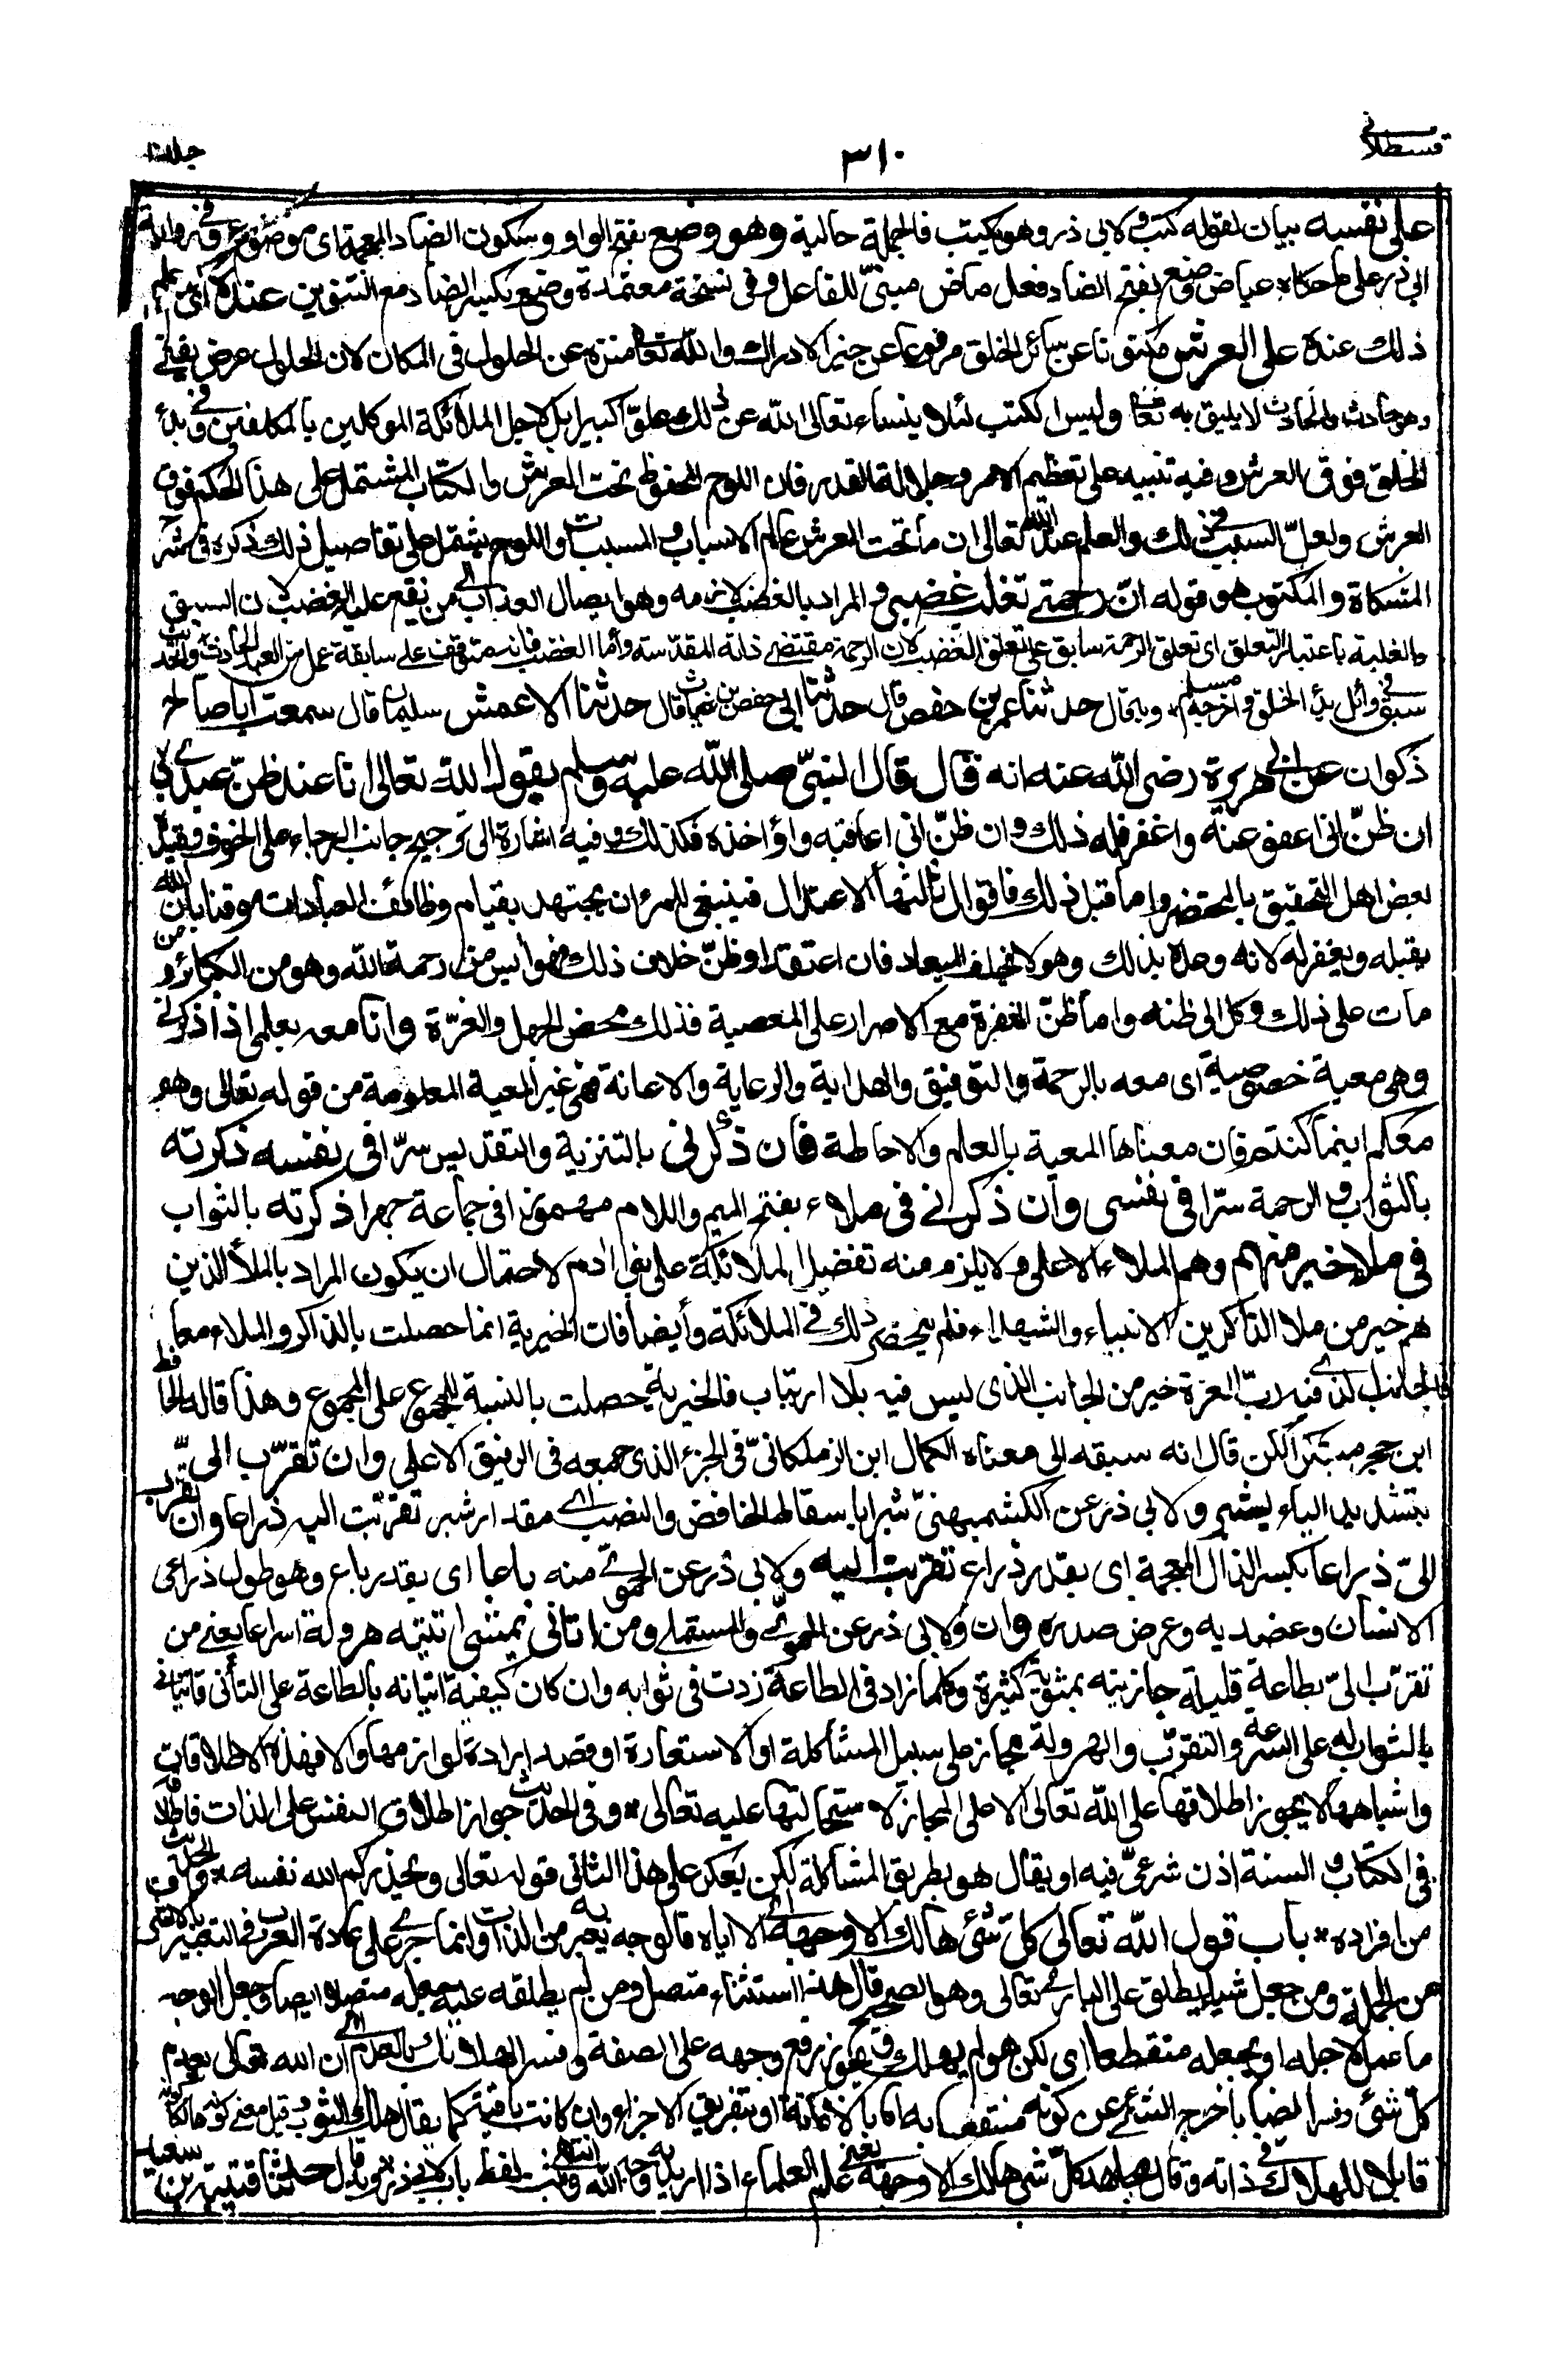 قسطلانی
٣١٠
جلد
على نفسه بيان لقوله كتب ولابي ذر وهو يكتب فالجملة حالية وهو وضع بفتح الواو وسكون الضاد المعجمة اى موضوع وفي رواية
ابي ذر على ما حكاه عياض وضع بفتح الضاد فعل ماض مبنىّ للفاعل وفى نسخة معتمدة وضع بكسر الضاد مع التنوين عنده اى علم
ذلك عنده على العرش مكتوبا عن سائر الخلق مرفوعا عن حيز الادراك والله تعالى منزه عن الحلول فى المكان لان الحلول عرض يفنى
وهو حادث والحادث لا يليق به تعالى وليس الكتب لئلا ينساه تعالى الله عن ذلك علوّا كبيرا بل لاجل الملائكة الموكلين بالمكلفين وفي بدء
الخلق فوق العرش وفيه تنبيه على تعظيم الامر وجلالة القدر فان اللوح المحفوظ تحت العرش والكتاب المشتمل على هذا الحكم فوق
العرش ولعلّ السبب في ذلك والعلم عند الله تعالى ان ما تحت العرش عالم الاسباب والمسببات واللوح يشتمل على تفاصيل ذلك ذكره فى شرح
المشكاة والمكتوب هو قوله انّ رحمتى تغلب غضبي والمراد بالغضب لازمه وهو ايصال العذاب الى من يقع عليه الغضب لان السبق
والغلبة باعتبار التعلق اى تعلق الرحمة سابق على تعلق الغضب لان الرحمة مقتضى ذاته المقدّسة وأما الغضب فانه متوقف على سابقة عمل من العبد الحادث والحديث
سبق في اوائل بدء الخلق واخرجه مسلم * وبه قال حدثنا عمر بن حفص قال حدثنا ابي حفص بن غياث قال حدثنا الاعمش سليمان قال سمعت ابا صالح
ذكوان عن ابى هريرة رضى الله عنه انه قال قال النبىّ صلى الله عليه وسلم يقول الله تعالى انا عند ظنّ عبدى بى
ان ظنّ انى اعفو عنه واغفر فله ذلك وان ظنّ انى اعاقبه واؤاخذه فكذلك وفيه اشارة الى ترجيح جانب الرجاء على الخوف وقيّد
بعض اهل التحقيق بالمحتضر واما قبل ذلك فاقوال ثالثها الاعتدال فينبغى للمرء ان يجتهد بقيام وظائف العبادات موقنا بان الله
يقبله ويغفر له لانه وعده بذلك وهو لا يخلف الميعاد فان اعتقد او ظنّ خلاف ذلك فهو آيس من رحمة الله وهو من الكبائر ومن
مات على ذلك وكل الى ظنه واما ظنّ المغفرة مع الاصرار على المعصية فذلك محض الجهل والغرّة وانا معه بعلمى اذا ذكرنى
وهى معية خصوصية اى معه بالرحمة والتوفيق والهداية والرعاية والاعانة فهى غير المعية المعلومة من قوله تعالى وهو
معكم اينما كنتم فان معناها المعية بالعلم والاحاطة فان ذكرنى بالتنزيه والتقديس سرّا فى نفسه ذكرته
بالثواب والرحمة سرّا فى نفسى وان ذكرنى فى ملاء بفتح الميم واللام مهموز اى فى جماعة جهرا ذكرته بالثواب
فى ملأ خير منهم وهم الملاء الاعلى ولا يلزم منه تفضيل الملائكة على بنى ادم لاحتمال ان يكون المراد بالملأ الذين
هم خير من ملا الذاكرين الانبياء والشهداء فلم ينحصر ذلك فى الملائكة وأيضا فان الخيرية انما حصلت بالذاكر والملاء معا
فالجانب الذى فيه ربّ العزة خير من الجانب الذى ليس فيه بلا ارتياب فالخيرية حصلت بالنسبة للمجموع على المجموع وهذا قاله الحافظ
ابن حجر مبتكرا لكن قال انه سبقه الى معناه الكمال ابن الزملكانىّ فى الجزء الذى جمعه فى الرفيق الاعلى وان تقرّب الىّ
بتشديد الياء بشبر ولابي ذر عن الكشميهنىّ شبرا باسقاط الخافض والنصب اى مقدار شبر تقرّبت اليه ذراعا وان تقرب
الىّ ذراعا بكسر الذال المعجمة اى بقدر ذراع تقرّبت اليه ولابى ذر عن الحموىّ منه باعا اى بقدر باع وهو طول ذراعى
الانسان وعضديه وعرض صدره وان ولابي ذر عن الحموىّ والمستملى ومن اتانى يمشى اتيته هرولة اسراعا يعنى من
تقرّب الىّ بطاعة قليلة جازيته بمثوبة كثيرة وكلما زاد فى الطاعة زدت فى ثوابه وان كان كيفية اتيانه بالطاعة على التأنى فاتيانى
بالثواب له على السرعة والتقرّب والهرولة مجاز على سبيل المشاكلة او الاستعارة او قصد ارادة لوازمها والا فهذه الاطلاقات
واشباهها لا يجوز اطلاقها على الله تعالى الا على المجاز لاستحالتها عليه تعالى * وفى الحديث جواز اطلاق النفس على الذات فاطلاقه
فى الكتاب والسنة اذن شرعىّ فيه او يقال هو بطريق المشاكلة لكن يعكر على هذا الثانى قوله تعالى ويحذركم الله نفسه * والحديث
من افراده * باب قول الله تعالى كلّ شئ هالك الا وجهه اى الا اياه فالوجه يعبر به عن الذات وانما جرى على عادة العرب فى التعبير بالاشرف
عن الجملة ومن جعل شيئا يطلق على البارى تعالى وهو الصحيح قال هذا استثناء متصل ومن لم يطلقه عليه جعله متصلا ايضا وجعل الوجه
ما عمل لاجله او يجعله منقطعا اى لكن هو لم يهلك ويجوز رفع وجهه على الصفة وفسر الهلاك بالعدم اى ان الله تعالى يعدم
كلّ شئ وفسر ايضا باخراج الشئ عن كونه منتفعا به اما بالاماتة او بتفريق الاجزاء وان كانت باقية كما يقال هلك الثوب وقيل معنى كونه هالكا كونه
قابلا للهلاك فى ذاته وقال مجاهد كلّ شئ هالك الا وجهه يعنى علم العلماء اذا اريد به وجه الله انتهى وثبت لفظ باب لابى ذر * وبه قال حدثنا قتيبة بن سعيد